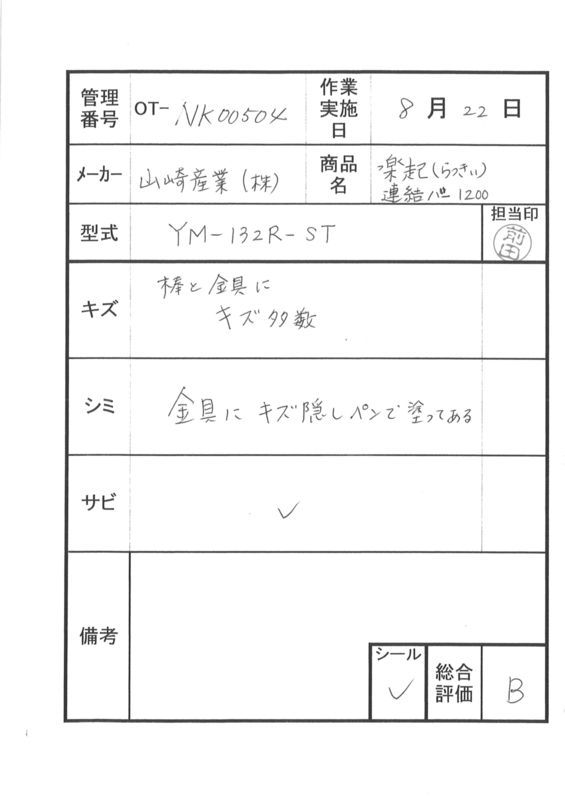 管理番号 OT-NK00504 作業実施日 8月22日
メーカー 山崎産業(株) 商品名 楽起(らっきぃ)
連結バー1200
型式 YM-132R-ST 担当印 前田
キズ 棒と金具に
キズ多数
シミ 金具にキズ隠しペンで塗ってある
サビ ✓
備考
シール ✓ 総合評価 B